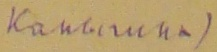 Каныгина)